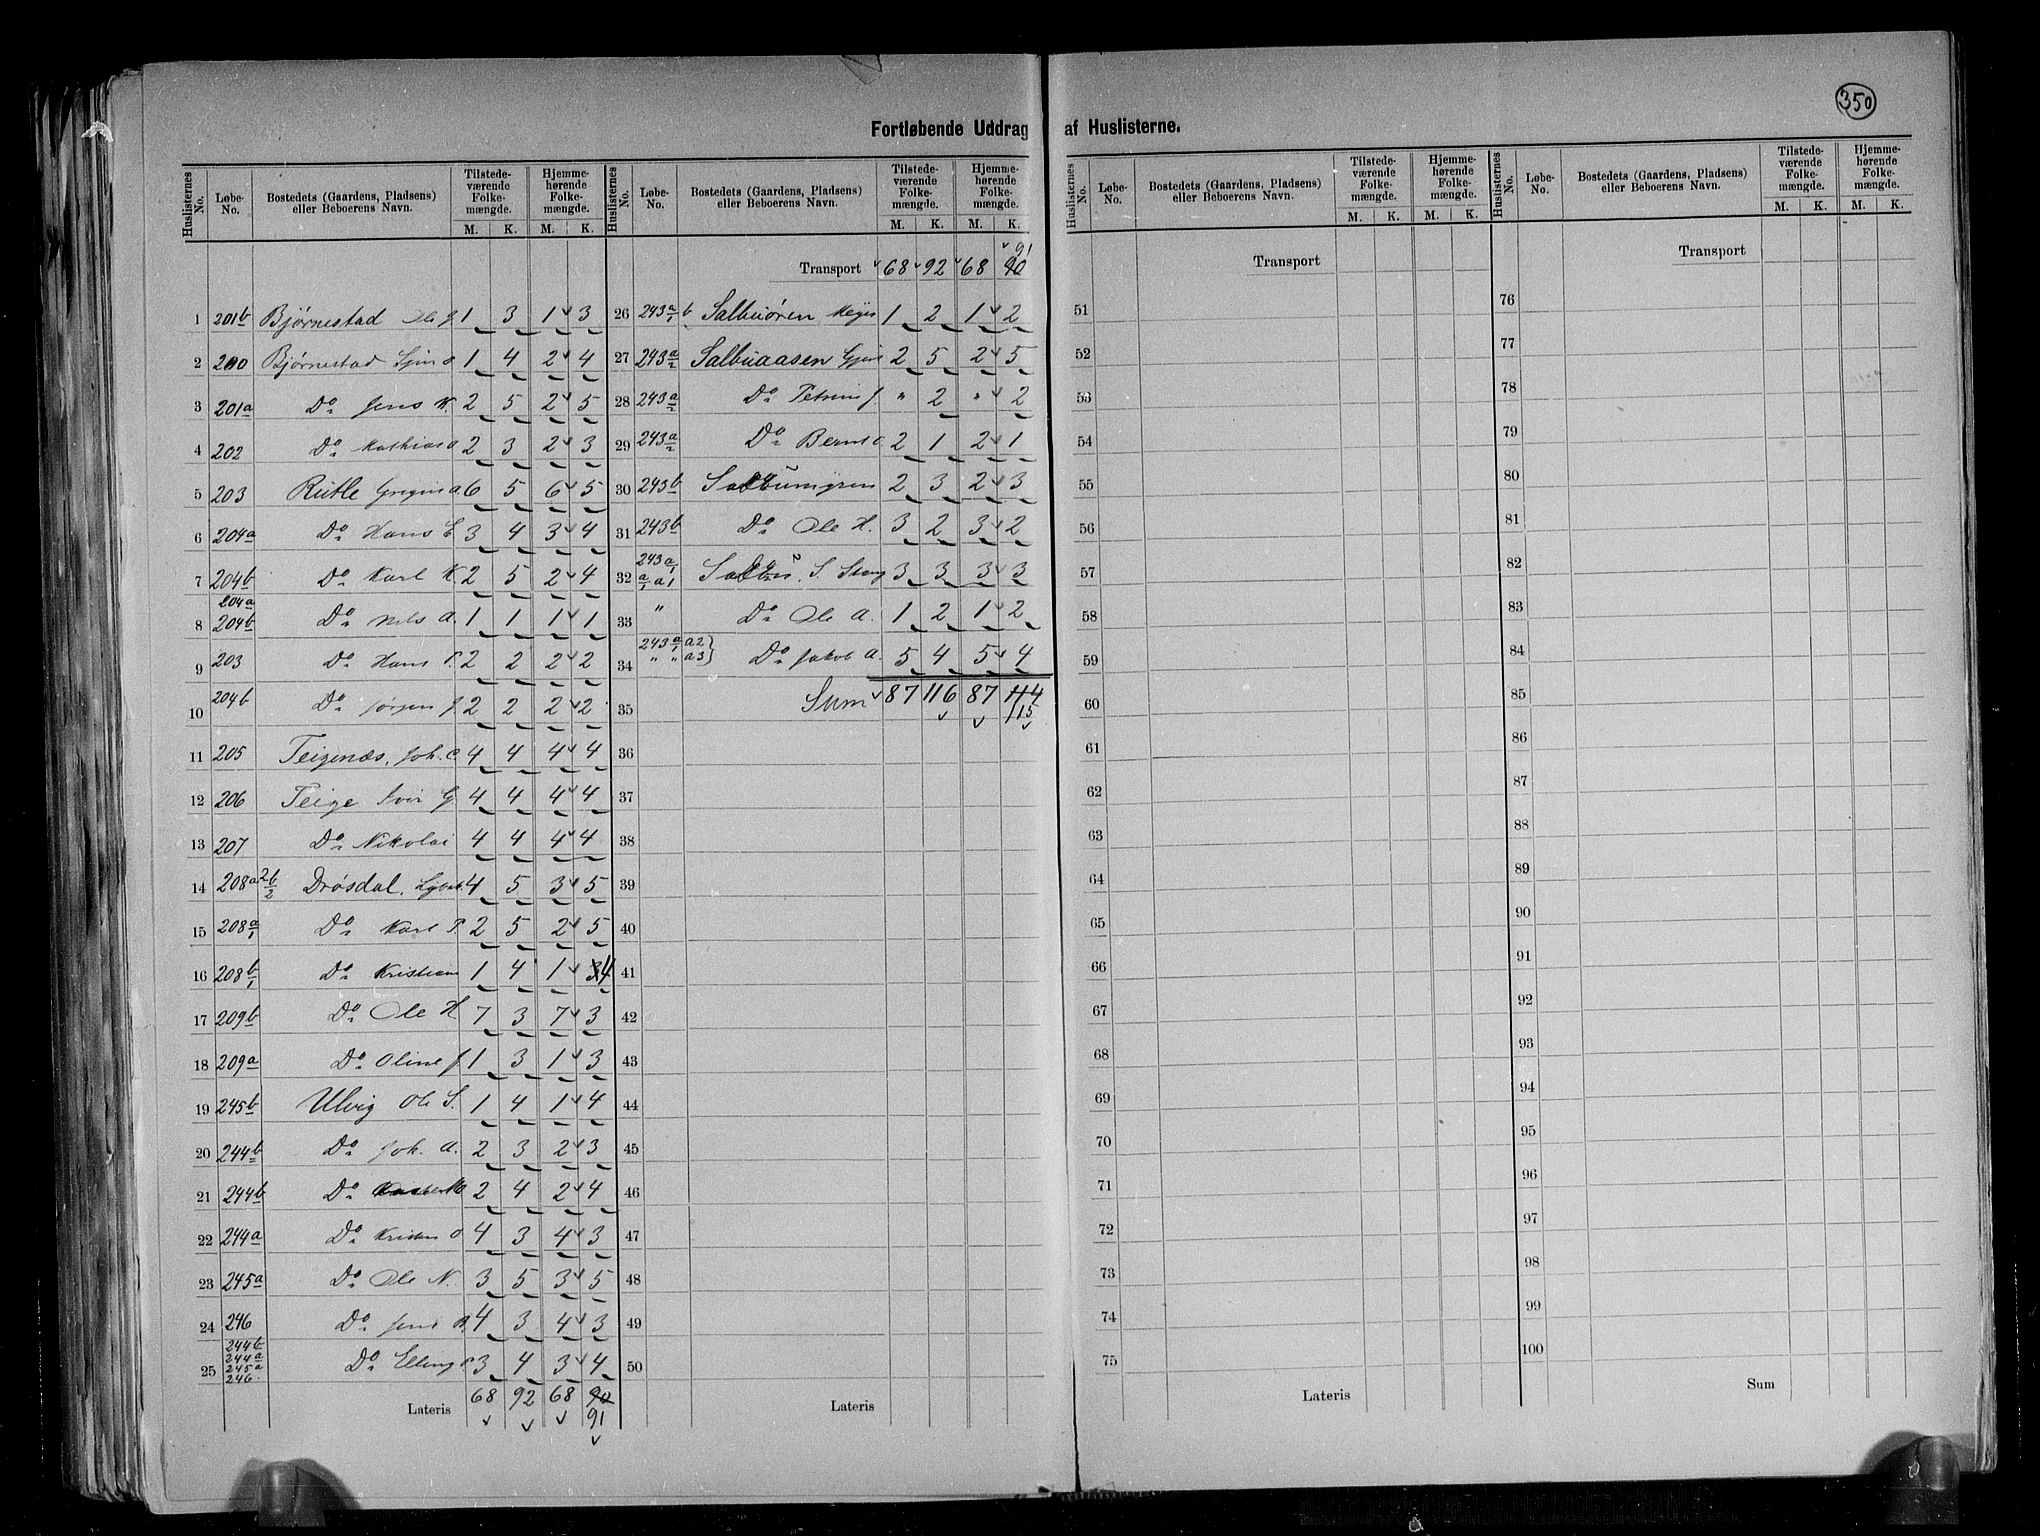 350
Fortløbende Uddrag af Huslisterne.
Huslisternes No. Løbe-No. Bostedets (Gaardens, Pladsens) eller Beboerens Navn. Tilstede-værende Folke-mængde. Hjemme-hørende Folke-mængde. Huslisternes No. Løbe-No. Bostedets (Gaardens, Pladsens) eller Beboerens Navn. Tilstede-værende Folke-mængde. Hjemme-hørende Folke-mængde.
M. K. M. K. M. K. M. K.
1 201b Bjørnestad Ole J 1 3 1 3
2 200 Bjørnestad 1 4 2 4
3 201a Do Jens K. 2 5 2 5
4 202 Do Mathias O 2 3 2 3
5 203 Rutle A. 6 5 6 5
6 204a Do Hans E 3 4 3 4
7 204b Do Karl K. 2 5 2 4
204a
8 204b Do Nils A. 1 1 1 1
9 203 Do Hans P. 2 2 2 2
10 204b Do Jørgen J 2 2 2 2
11 205 Teigenæs, Joh. C. 4 4 4 4
12 206 Teige Iver G. 4 4 4 4
13 207 Do Nikolai 4 4 4 4
14 208a 2b/2 Drøsdal, 4 5 3 5
15 208a/1 Do Karl P. 2 5 2 5
16 208b/1 Do Kristian 1 4 1 3 4
17 209b Do Ole H 7 3 7 3
18 209a Do Oline J 1 3 1 3
19 245b Ulvig Ole S. 1 4 1 4
20 244b Do Joh. A. 2 3 2 3
21 244b Do 2 4 2 4
22 244a Do Kristen O 4 3 4 3
23 245a Do Ole N. 3 5 3 5
24 246 Do Jens 4 3 4 3
244b
244a
25 245a Do Elling 3 4 3 4
246.
Lateris 68 92 68 90
91
91
Transport 68 92 68 90
26 243a/1 b Salbuøren 1 2 1 2
27 243a/2 Salbuaasen 2 5 2 5
28 243a/2 Do Petrine J. " 2 " 2
29 243a/2 Do Bernt O 2 1 2 1
30 243b 2 3 2 3
31 243b Do Ole H. 3 2 3 2
243a/1
32 a/1 a1 Salbu, S. 3 3 3 3
33 " Do Ole A. 1 2 1 2
243a/1 a2
34 " " a3 Do Jakob A. 5 4 5 4
35 Sum 87 116 87 114
115
36
37
38
39
40
41
42
43
44
45
46
47
48
49
50
Lateris
Huslisternes No. Løbe-No. Bostedets (Gaardens, Pladsens) eller Beboerens Navn. Tilstede-værende Folke-mængde. Hjemme-hørende Folke-mængde. Huslisternes No. Løbe-No. Bostedets (Gaardens, Pladsens) eller Beboerens Navn. Tilstede-værende Folke-mængde. Hjemme-hørende Folke-mængde.
M. K. M. K. M. K. M. K.
Transport
51
52
53
54
55
56
57
58
59
60
61
62
63
64
65
66
67
68
69
70
71
72
73
74
75
Lateris
Transport
76
77
78
79
80
81
82
83
84
85
86
87
88
89
90
91
92
93
94
95
96
97
98
99
100
Sum